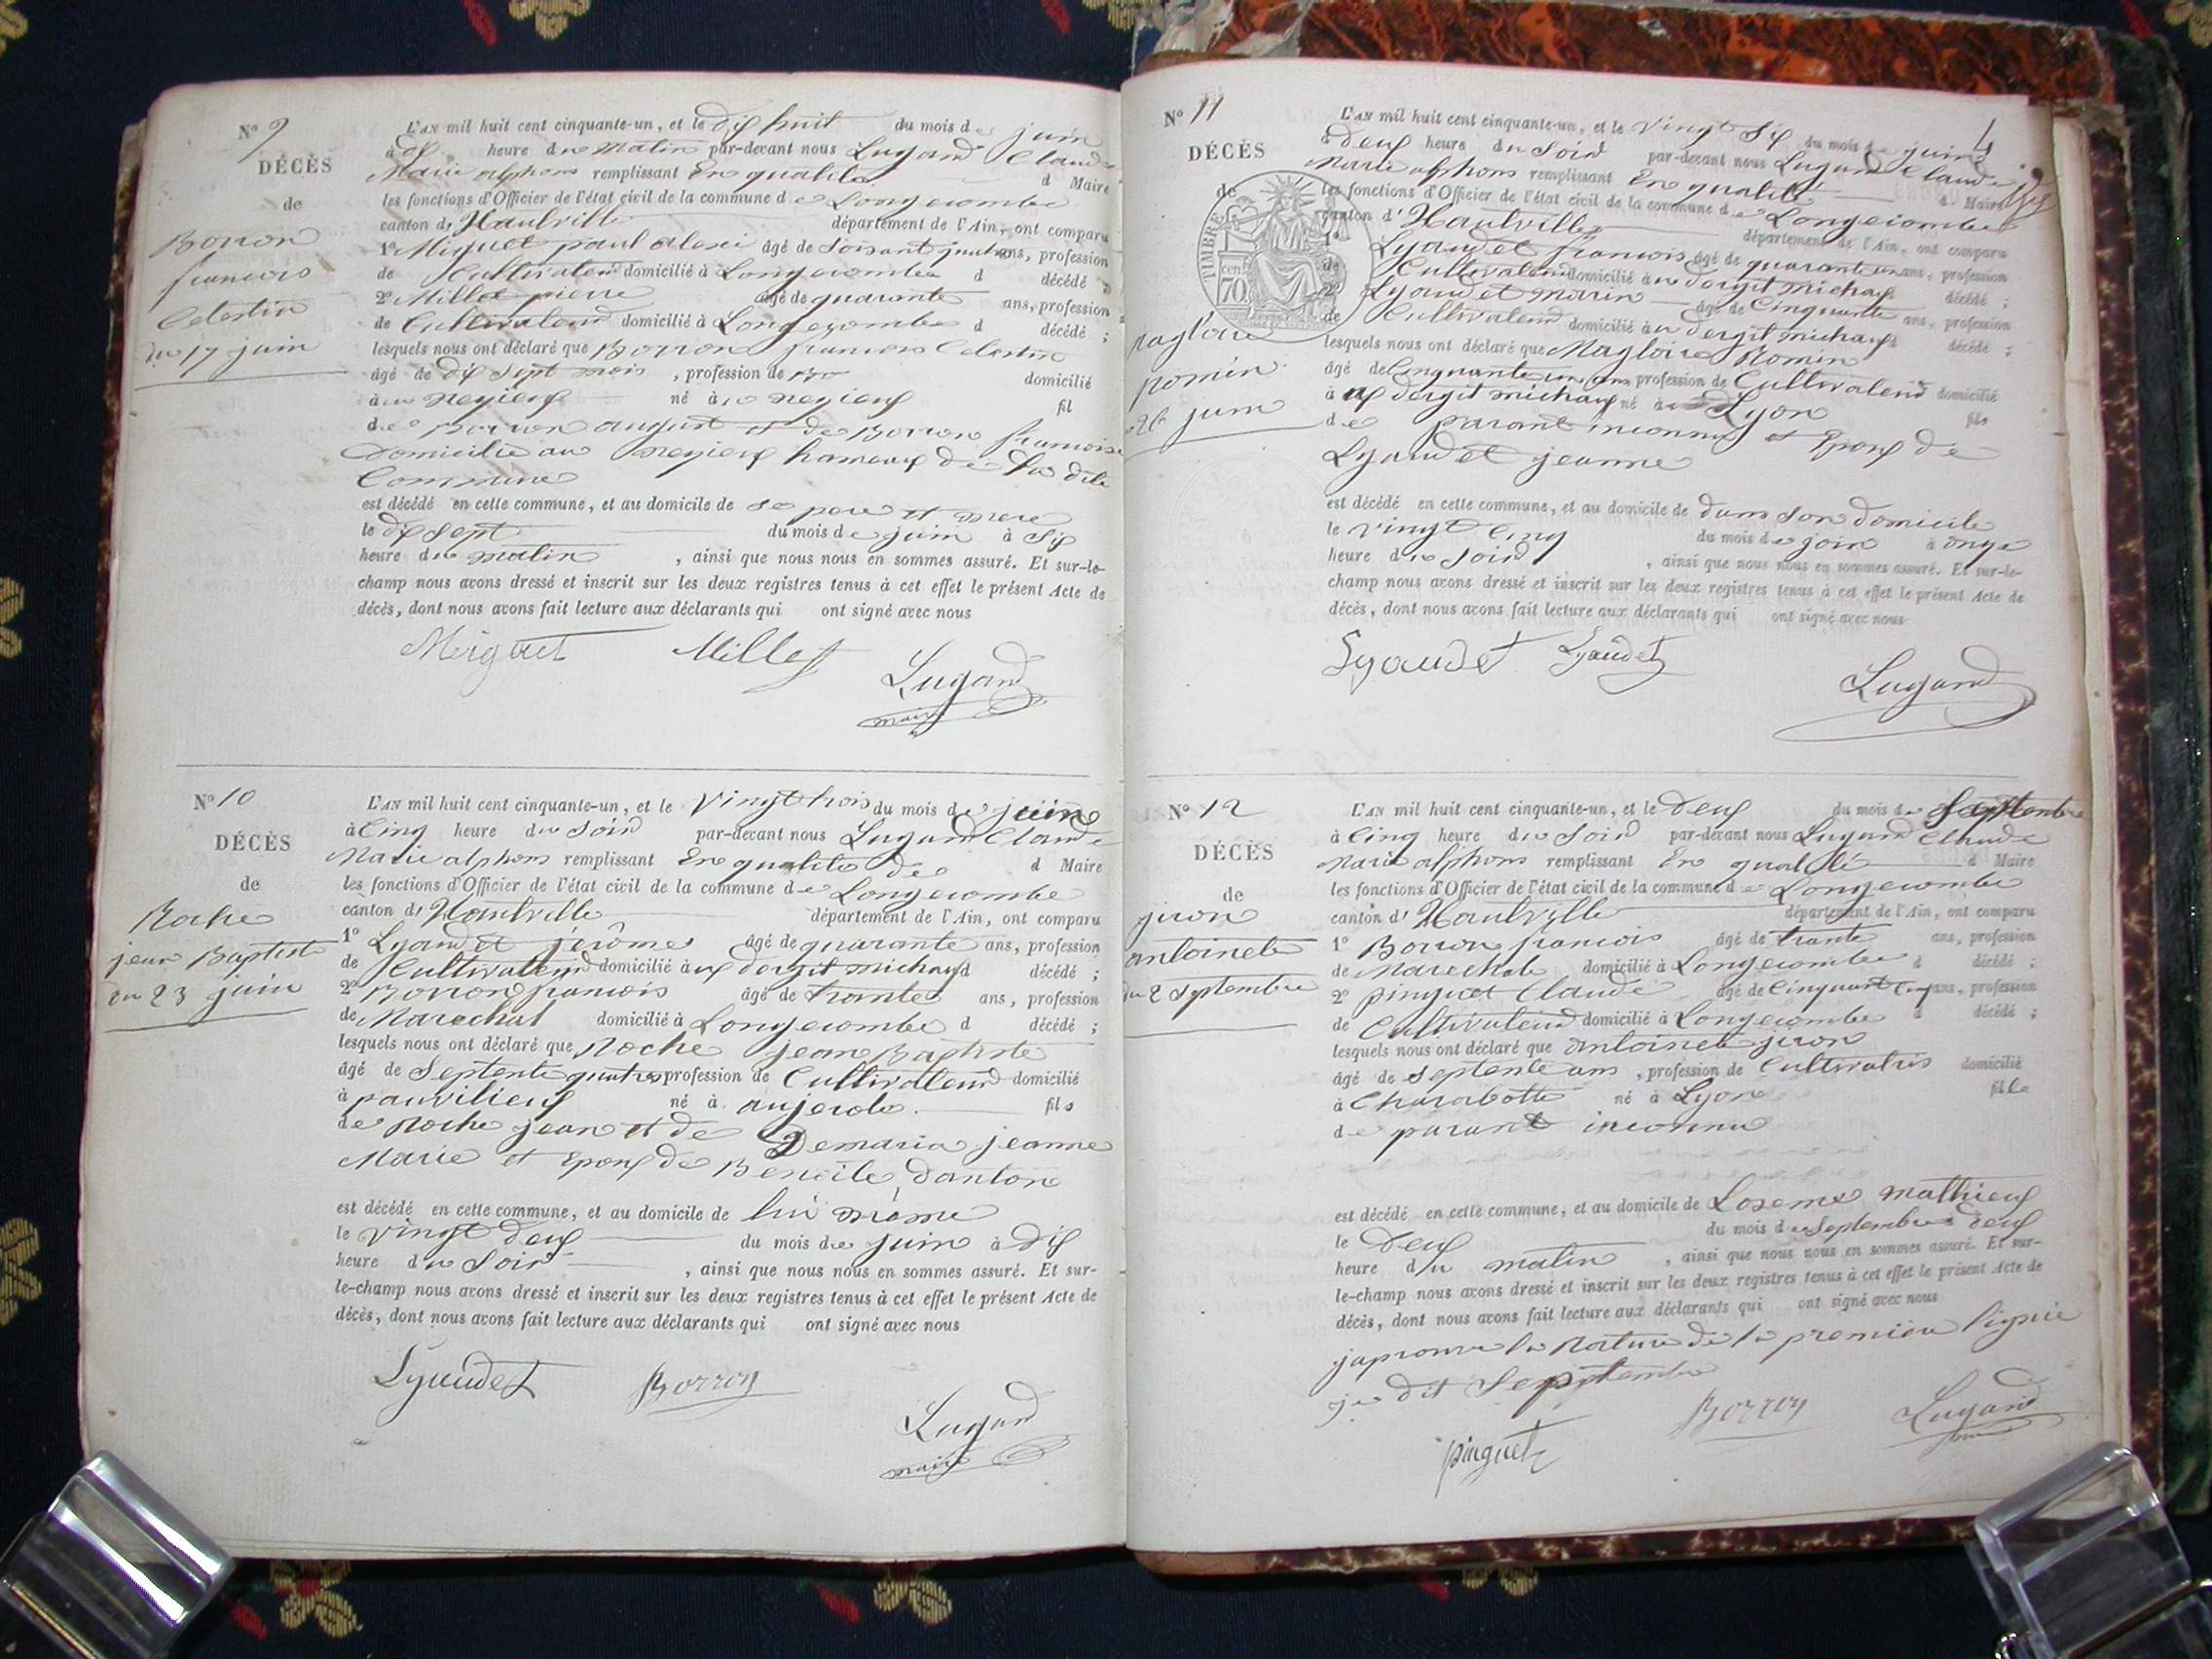 N° 9
DÉCÈS
de
Borron
francois
Celestin
du 17 juin
L'AN mil huit cent cinquante-un, et le dix huit du mois de juin
à dix heure du matin par-devant nous Lugand Claude
Marie alphons remplissant En qualité d Maire
les fonctions d'Officier de l'état civil de la commune de Longecombe
canton d, Hautville département de l'Ain, ont comparu
1° Miguet paul alexi âgé de soisant quatre ans, profession
de Cultivateur domicilié à Longecombe d décédé ;
2° Millet pierre âgé de quarante ans, profession
de Cultivateur domicilié à Longecombe d décédé ;
lesquels nous ont déclaré que Borron francois Celestin
âgé de dix sept mois , profession de domicilié
à né à fil
de Borron august et de Borron francoise
domicilie au hameaux de la dite
Commune
est décédé en cette commune, et au domicile de se pere et mere
le dix sept du mois de juin à six
heure du matin , ainsi que nous nous en sommes assuré. Et sur-le-
champ nous avons dressé et inscrit sur les deux registres tenus à cet effet le présent Acte de
décès, dont nous avons fait lecture aux déclarants qui ont signé avec nous
Miguet Millet
Lugand
maire
N° 10
DÉCÈS
de
Roche
jean Baptiste
du 23 juin
L'AN mil huit cent cinquante-un, et le vingt trois du mois de juin
à Cinq heure du Soir par-devant nous Lugand Claude
Marie alphons remplissant En qualite de d Maire
les fonctions d'Officier de l'état civil de la commune de Longecombe
canton d, Hautville département de l'Ain, ont comparu
1° Lyaudet jérôme âgé de quarante ans, profession
de Cultivateur domicilié aux dergit michaux d décédé ;
2° Borron francois âgé de trante ans, profession
de Marechal domicilié à Longecombe d décédé ;
lesquels nous ont déclaré que Roche jean Baptiste
âgé de Septente quatres profession de Cultivateur domicilié
à pauvilieux né à anjerole fils
de Roche jean et de Demaria jeanne
Marie et Epoux de Benoite danton
est décédé en cette commune, et au domicile de lui même
le vingt deux du mois de juin à dix
heure du Soir , ainsi que nous nous en sommes assuré. Et sur-
le-champ nous avons dressé et inscrit sur les deux registres tenus à cet effet le présent Acte de
décès, dont nous avons fait lecture aux déclarants qui ont signé avec nous
Lyaudet Borron
Lugand
maire
N° 11
4
DÉCÈS
de
TIMBRE
cent
70
magloire
romin
26 juin
L'AN mil huit cent cinquante-un, et le vingt Six du mois de juin
à deux heure du Soir par-devant nous Lugand Claude
Marie alphons remplissant En qualité d Maire
les fonctions d'Officier de l'état civil de la commune de Longecombe
canton d' Hautville département de l'Ain, ont comparu
1° Lyaudet francois âgé de quarante un ans, profession
de Cultivateur domicilié au dergit michaux décédé ;
2° Lyaudet Morrin âgé de Cinquante ans, profession
de Cultivateur domicilié au dergit michaux d décédé ;
lesquels nous ont déclaré que Magloire Romin
âgé de Cinquante un ans profession de Cultivateur domicilié
à aux dergit michaux né à Lyon fils
de parant inconnu et Epoux de
Lyaudet jeanne
est décédé en cette commune, et au domicile de dans son domicile
le vingt Cinq du mois de join à onze
heure du Soir , ainsi que nous nous en sommes assuré. Et sur-le-
champ nous avons dressé et inscrit sur les deux registres tenus à cet effet le présent Acte de
décès, dont nous avons fait lecture aux déclarants qui ont signé avec nous
Lyaudet Lyaudet
Lugand
N° 12
DÉCÈS
de
jiron
antoinete
du 2 septembre
L'AN mil huit cent cinquante-un, et le Deux du mois de Septtembre
à Cinq heure du Soir par-devant nous Lugand Claude
Marie alphons remplissant En qualité d Maire
les fonctions d'Officier de l'état civil de la commune de Longecombe
canton d' Hautville département de l'Ain, ont comparu
1° Borron francois âgé de trante ans, profession
de Marechale domicilié à Longecombe d décédé ;
2° pinguet Claude âgé de Cinquant Cinq ans, profession
de Cultivateur domicilié à Longecombe d décédé ;
lesquels nous ont déclaré que antoinete jiron
âgé de septente ans , profession de Cultivatris domicilié
à Charabotte né à Lyon fille
de parant inconnu
est décédé en cette commune, et au domicile de Loseme mathieux
le Deux du mois de septembre deux
heure du matin , ainsi que nous nous en sommes assuré. Et sur-
le-champ nous avons dressé et inscrit sur les deux registres tenus à cet effet le présent Acte de
décès, dont nous avons fait lecture aux déclarants qui ont signé avec nous
japrouve la Rature de la premiere lignie
je dit Septtembre
Borron Lugand
pinguet